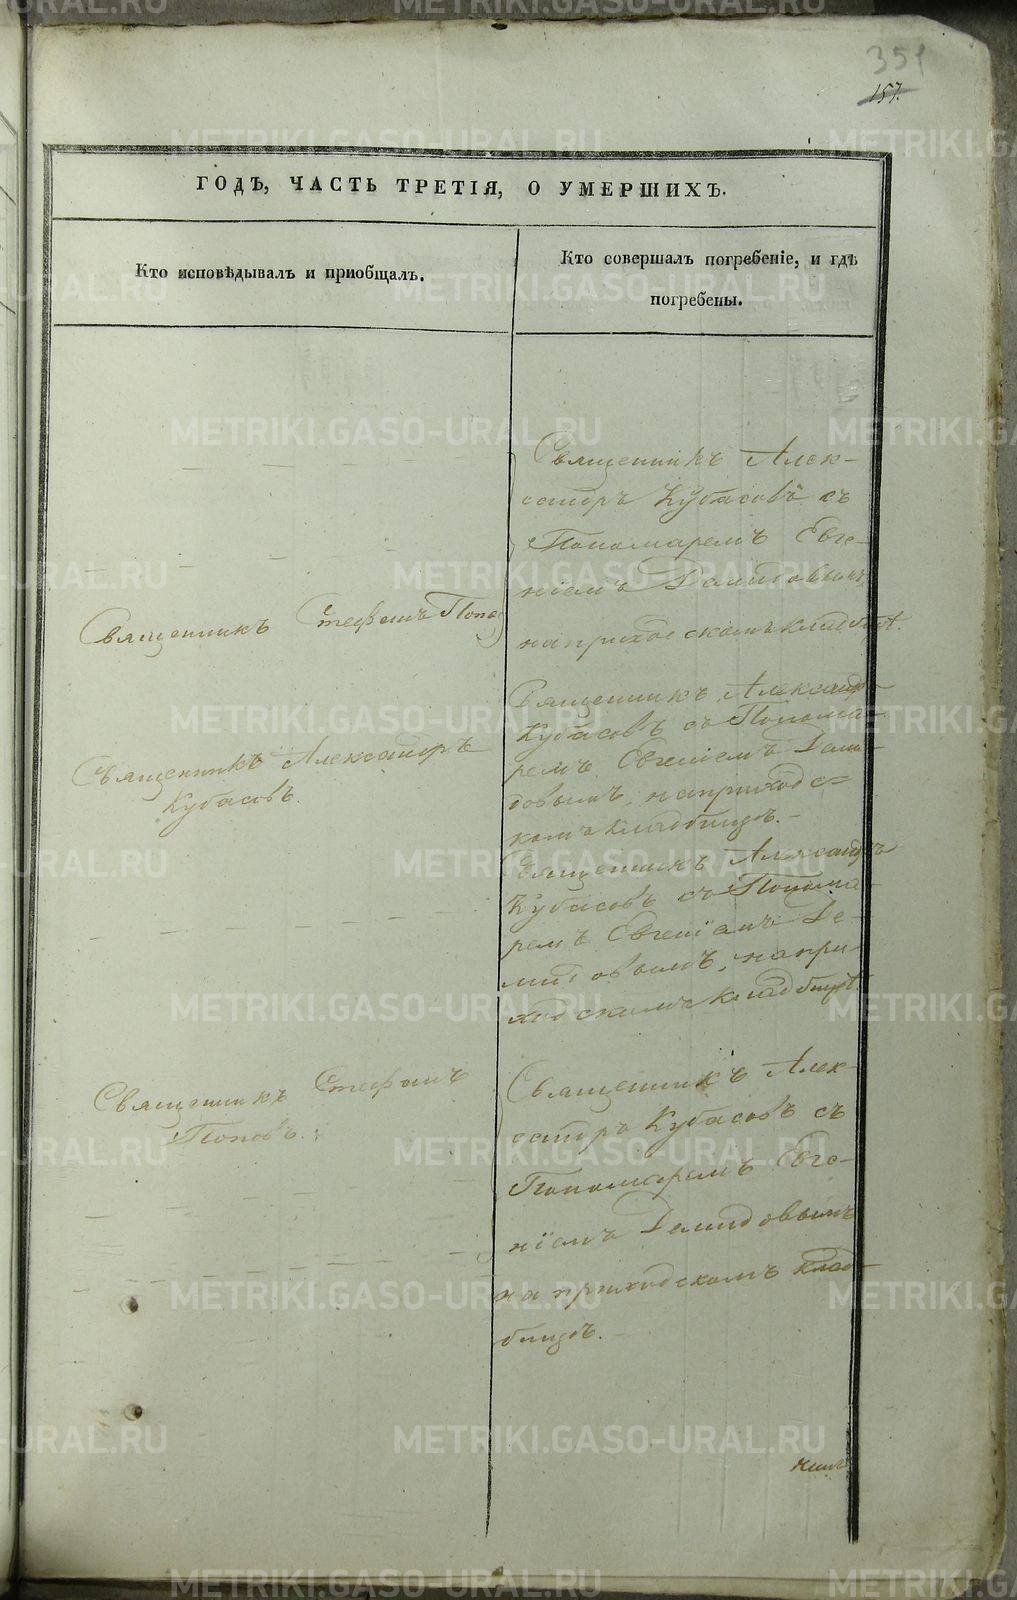 351
157.
ГОДЪ, ЧАСТЬ ТРЕТІЯ, О УМЕРШИХЪ.
Кто исповѣдывалъ и приобщалъ.
Кто совершалъ погребеніе, и гдѣ
погребены.
Священникъ Алек-
сандръ Кубасовъ съ
Пономаремъ Евге-
ніемъ Демидовымъ
на приходскомъ кладбищѣ.
Священникъ Стефанъ Попов
Священникъ Александръ
Кубасовъ съ Понома-
ремъ Евгеніемъ Деми-
довымъ, на приход с-
комъ кладбищѣ.-
Священникъ Александръ
Кубасовъ.
Священникъ Александръ
Кубасовъ съ Понома-
ремъ Евгеніемъ Де-
мидовымъ, на при-
ходскомъ кладбищѣ.
Священникъ Стефанъ
Поповъ.
Священникъ Алек-
сандръ Кубасовъ съ
Пономаремъ Евге-
ніемъ Демидовымъ
на приходскомъ клад-
бищѣ.-
METRIKI.GASO-URAL.RU